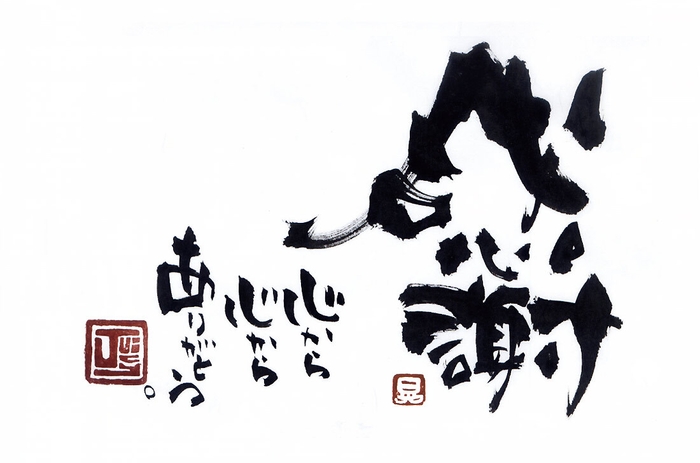 感謝
心から
心から
ありがとう。
晃